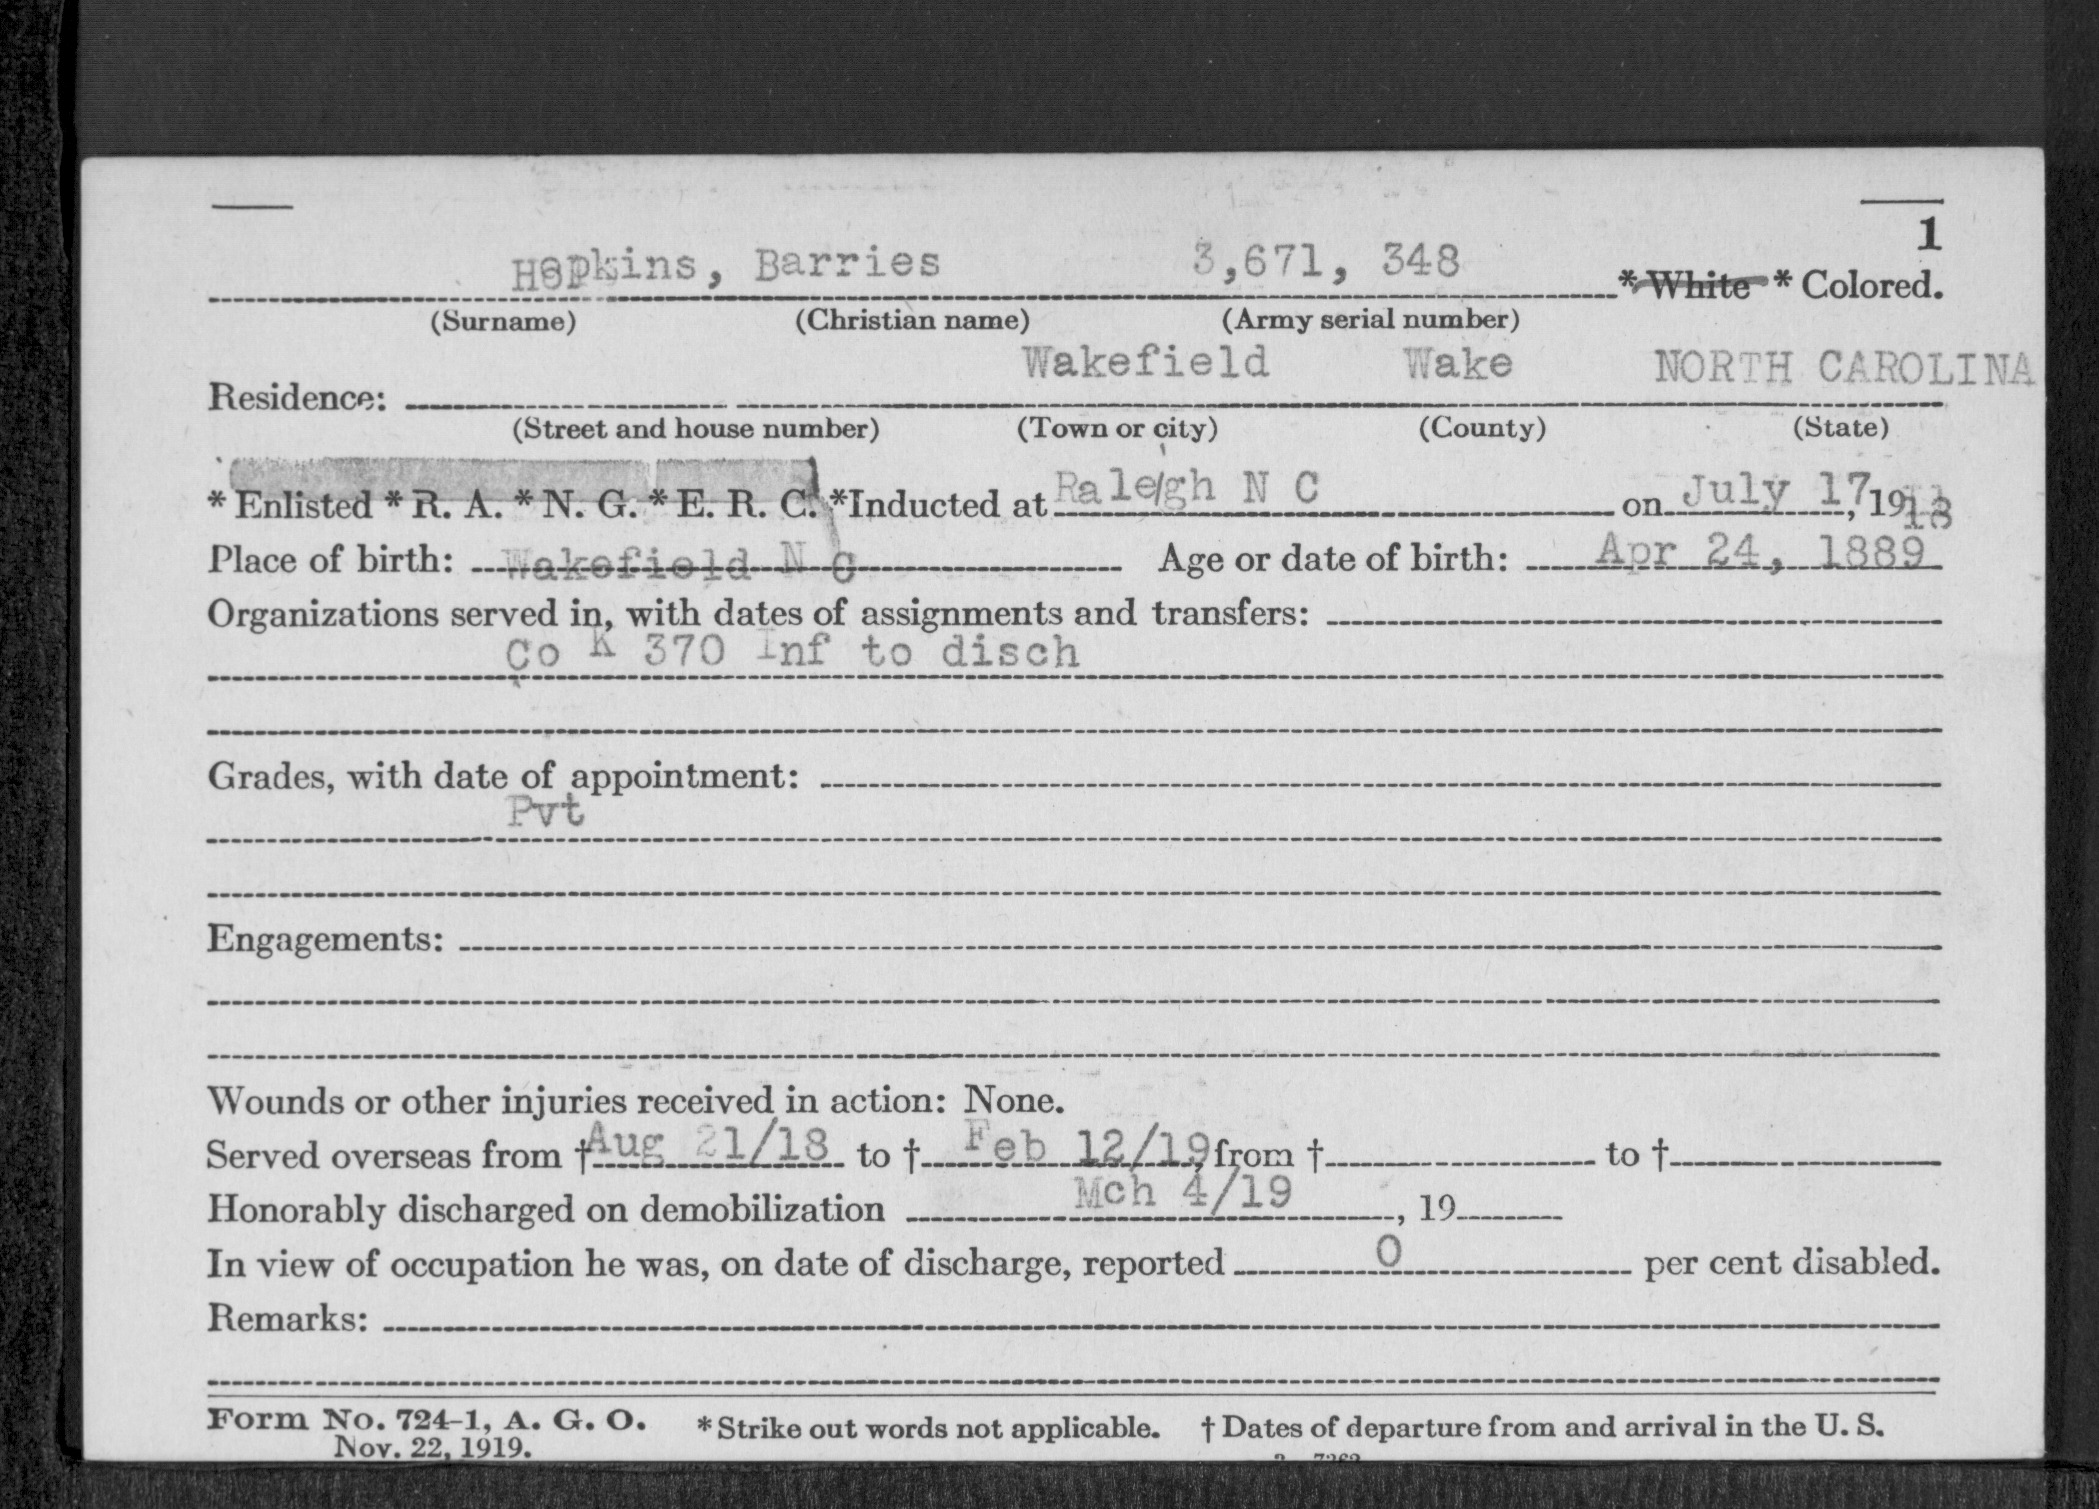 1
Hopkins, Barries 3,671, 348 * White * Colored.
(Surname) (Christian name) (Army serial number)
Wakefield Wake NORTH CAROLINA
Residence:
(Street and house number) (Town or city) (County) (State)
* Enlisted * R. A. * N. G. * E. R. C. *Inducted at Raleigh N C on July 17, 1918
Place of birth: Wakefield N C Age or date of birth: Apr 24, 1889
Organizations served in, with dates of assignments and transfers:
Co K 370 Inf to disch
Grades, with date of appointment:
Pvt
Engagements:
Wounds or other injuries received in action: None.
Served overseas from † Aug 21/18 to † Feb 12/19, from † to †
Honorably discharged on demobilization Mch 4/19, 19
In view of occupation he was, on date of discharge, reported 0 per cent disabled.
Remarks:
Form No. 724-1, A. G. O. * Strike out words not applicable. † Dates of departure from and arrival in the U. S.
Nov. 22, 1919.